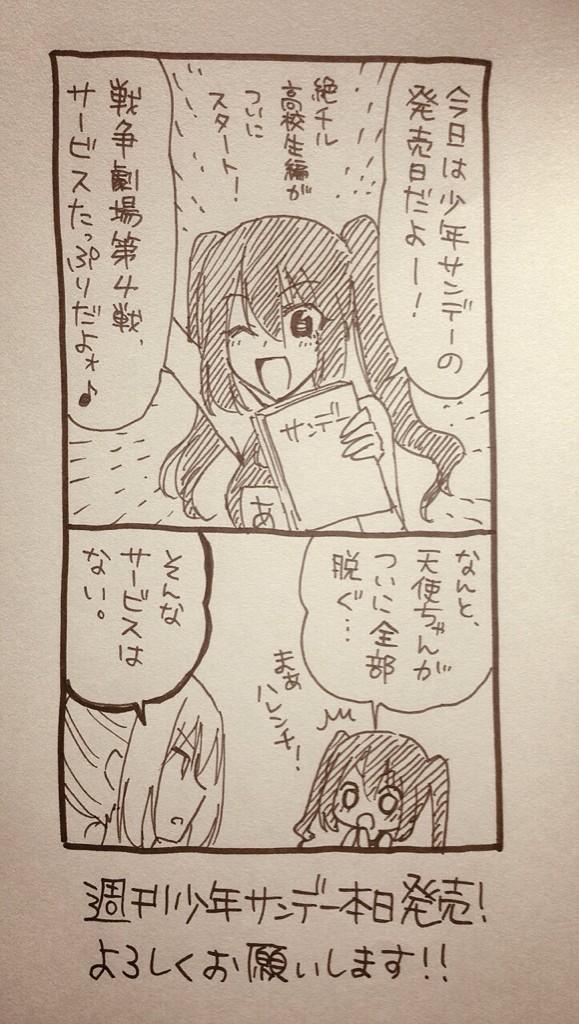 今日は少年サンデーの
発売日だよー!
絶チル
高校生編が
ついに
スタート!
戦争劇場第4戦、
サービスたっぷりだよ*♪
サンデー
あ
なんと、
天使ちゃんが
ついに全部
脱ぐ…
まぁ
ハレンチ!
そんな
サービスは
ない。
週刊少年サンデー本日発売!
よろしくお願いします!!